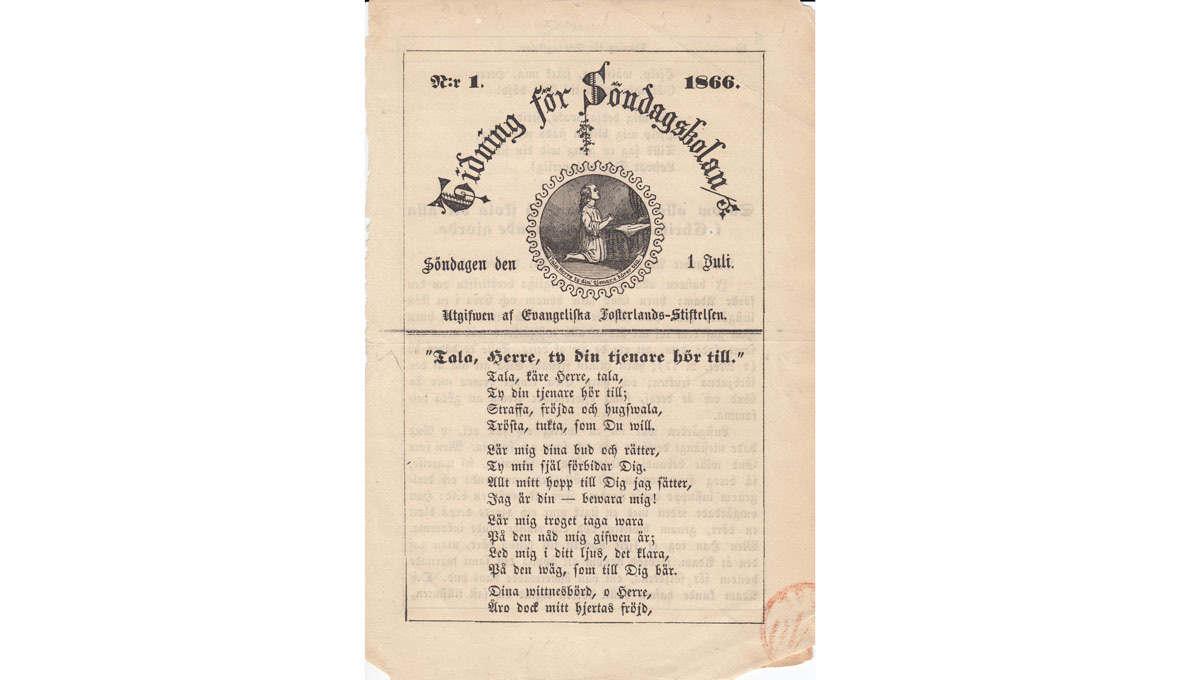 N:r 1.
1866.
Tidning för Söndagskolan
Söndagen den
1 Juli.
Tala Herre ty din tjenare hörer till.
Utgifwen af Evangeliska Fosterlands-Stiftelsen.
"Tala, Herre, ty din tjenare hör till."
Tala, käre Herre, tala,
Ty din tjenare hör till;
Straffa, fröjda och hugswala,
Trösta, tukta, som Du will.
Lär mig dina bud och rätter,
Ty min själ förbidar Dig.
Allt mitt hopp till Dig jag sätter,
Jag är din — bewara mig!
Lär mig troget taga wara
På den nåd mig gifwen är;
Led mig i ditt ljus, det klara,
På den wäg, som till Dig bär.
Dina wittnesbörd, o Herre,
Äro dock mitt hjertas fröjd,